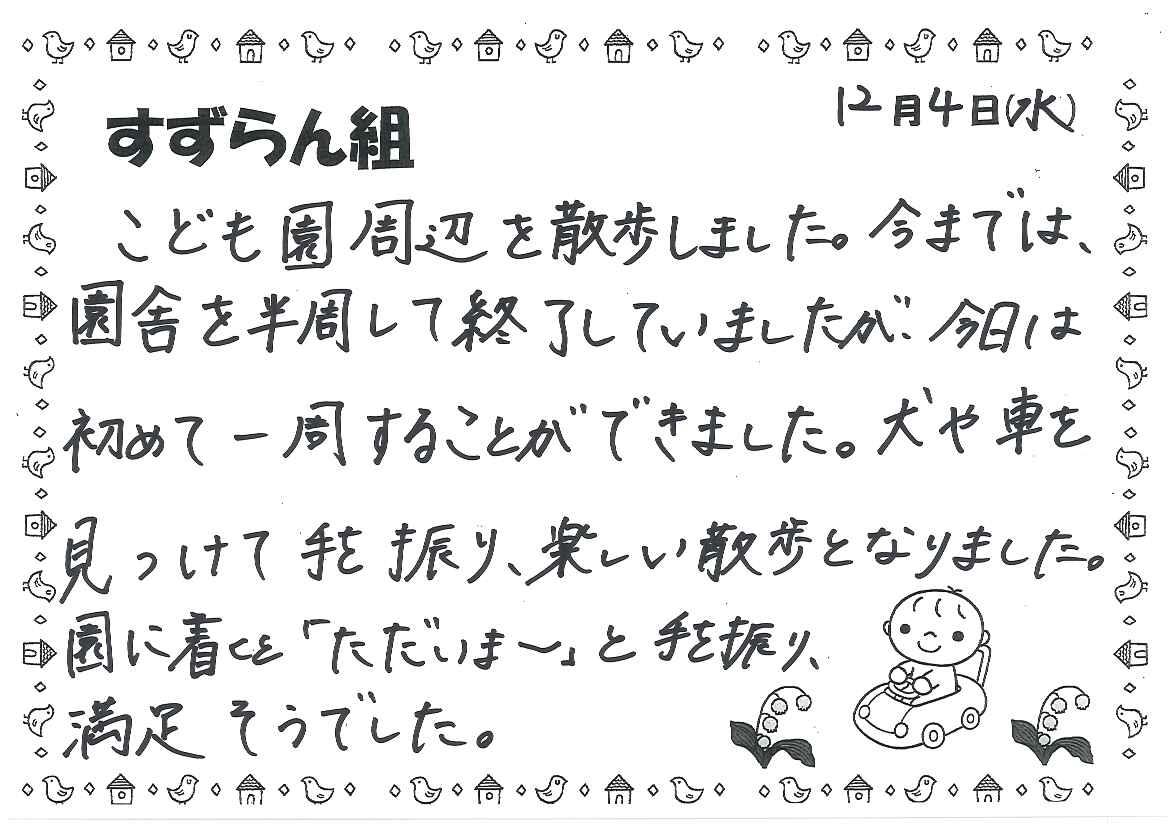 12月4日(水)
すずらん組
こども園周辺を散歩しました。今までは、
園舎を半周して終了していましたが、今日は
初めて一周することができました。犬や車を
見つけて手を振り、楽しい散歩となりました。
園に着くと「ただいま〜」と手を振り、
満足そうでした。